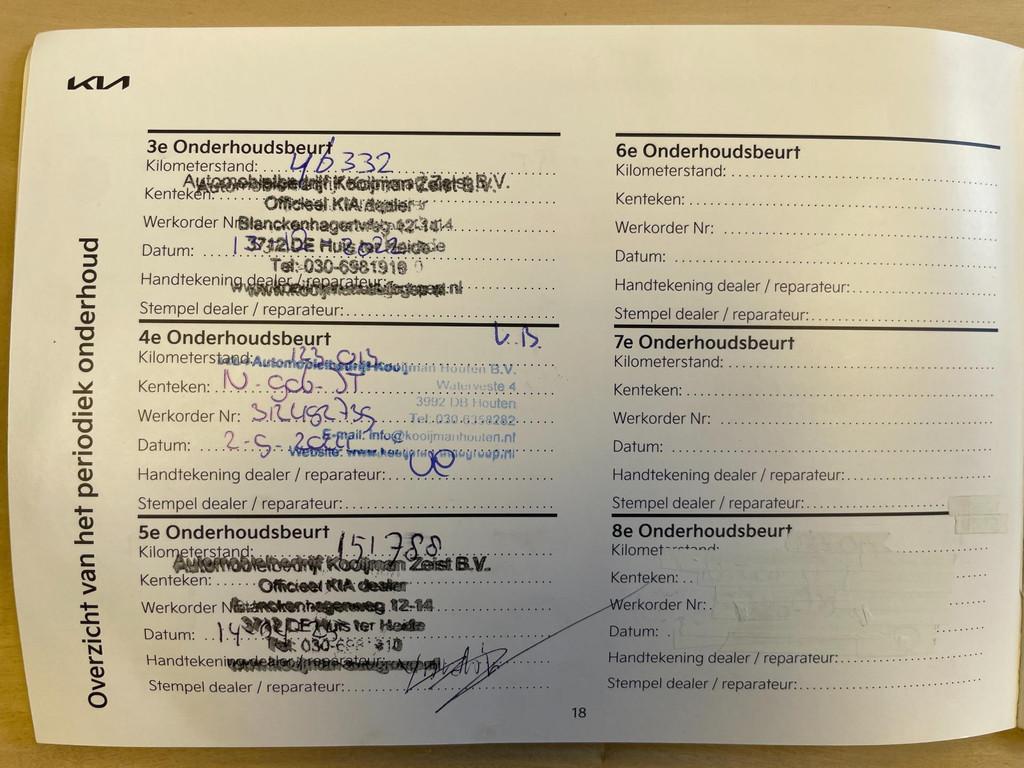 KIA
Overzicht van het periodiek onderhoud
3e Onderhoudsbeurt
Kilometerstand: 46.332
Automobielbedrijf Kooijman Zeist B.V.
Kenteken:
Officieel KIA dealer
Werkorder Nr:
Blanckenhagenweg 12-14
Datum:
3712 DE Huis ter Heide
Tel: 030-6981910
Handtekening dealer / reparateur:
Stempel dealer / reparateur:
4e Onderhoudsbeurt
Kilometerstand:
Automobielbedrijf Kooijman Houten B.V.
Kenteken:
Waterveste 4
3992 DB Houten
Werkorder Nr:
Tel: 030-6359282
Datum:
E-mail: info@kooijmanhouten.nl
Website:
Handtekening dealer / reparateur:
Stempel dealer / reparateur:
5e Onderhoudsbeurt
Kilometerstand: 151788
Automobielbedrijf Kooijman Zeist B.V.
Kenteken:
Officieel KIA dealer
Werkorder Nr:
Blanckenhagenweg 12-14
Datum:
3712 DE Huis ter Heide
Handtekening dealer / reparateur:
Stempel dealer / reparateur:
6e Onderhoudsbeurt
Kilometerstand:
Kenteken:
Werkorder Nr:
Datum:
Handtekening dealer / reparateur:
Stempel dealer / reparateur:
7e Onderhoudsbeurt
Kilometerstand:
Kenteken:
Werkorder Nr:
Datum:
Handtekening dealer / reparateur:
Stempel dealer / reparateur:
8e Onderhoudsbeurt
Kilometerstand:
Kenteken:
Werkorder Nr:
Datum:
Handtekening dealer / reparateur:
Stempel dealer / reparateur:
18